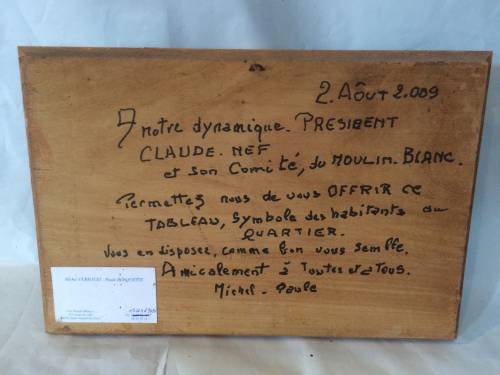 2. Août 2.009
A notre dynamique. PRESIDENT
CLAUDE. NEF
et son Comité, du MOULIN. BLANC.
Permettez nous de vous OFFRIR ce
TABLEAU, Symbole des habitants du
QUARTIER.
Vous en disposez, comme bon vous semble.
Amicalement à Toutes et à Tous.
Michel - Paule